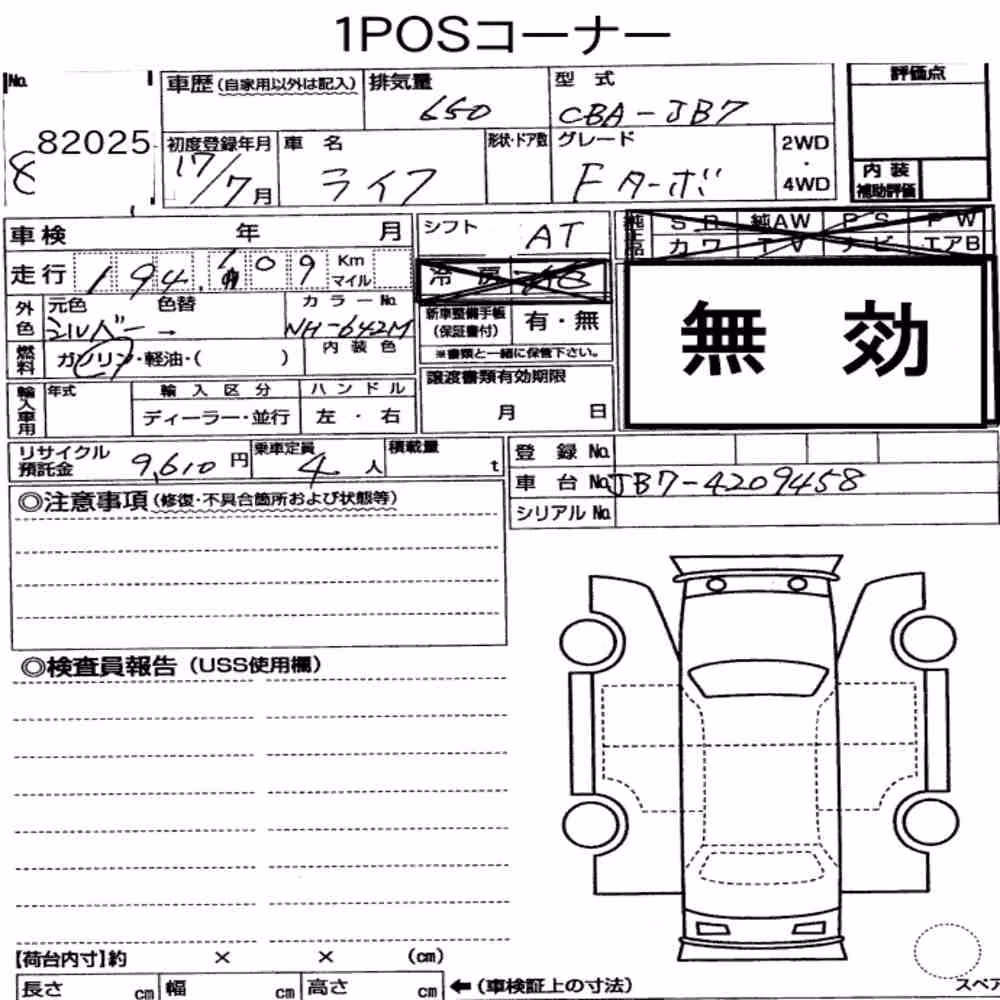 1POSコーナー
No.
82025
8
車歴(自家用以外は記入)
排気量
650
型式
CBA-JB7
評価点
初度登録年月
17/7月
車名
ライフ
形状・ドア数
グレード
Fターボ
2WD
・
4WD
内装
補助評価
車検 年 月
シフト
AT
純正品
SR 純AW PS PW
カワ TV ナビ エアB
走行
194,109
Km
マイル
冷房
無効
外色
元色 色替
シルバー →
カラーNo.
NH-642M
新車整備手帳
(保証書付)
有・無
※書類と一緒に保管下さい。
燃料
ガソリン・軽油・( )
内装色
譲渡書類有効期限
月 日
輸入車用
年式
輸入区分
ディーラー・並行
ハンドル
左・右
リサイクル
預託金
9,610円
乗車定員
4人
積載量
t
登録No.
車台No. JB7-4209458
シリアルNo.
◎注意事項(修復・不具合箇所および状態等)
◎検査員報告(USS使用欄)
【荷台内寸】約 × × (cm)
長さ cm 幅 cm 高さ cm
←(車検証上の寸法)
スペア